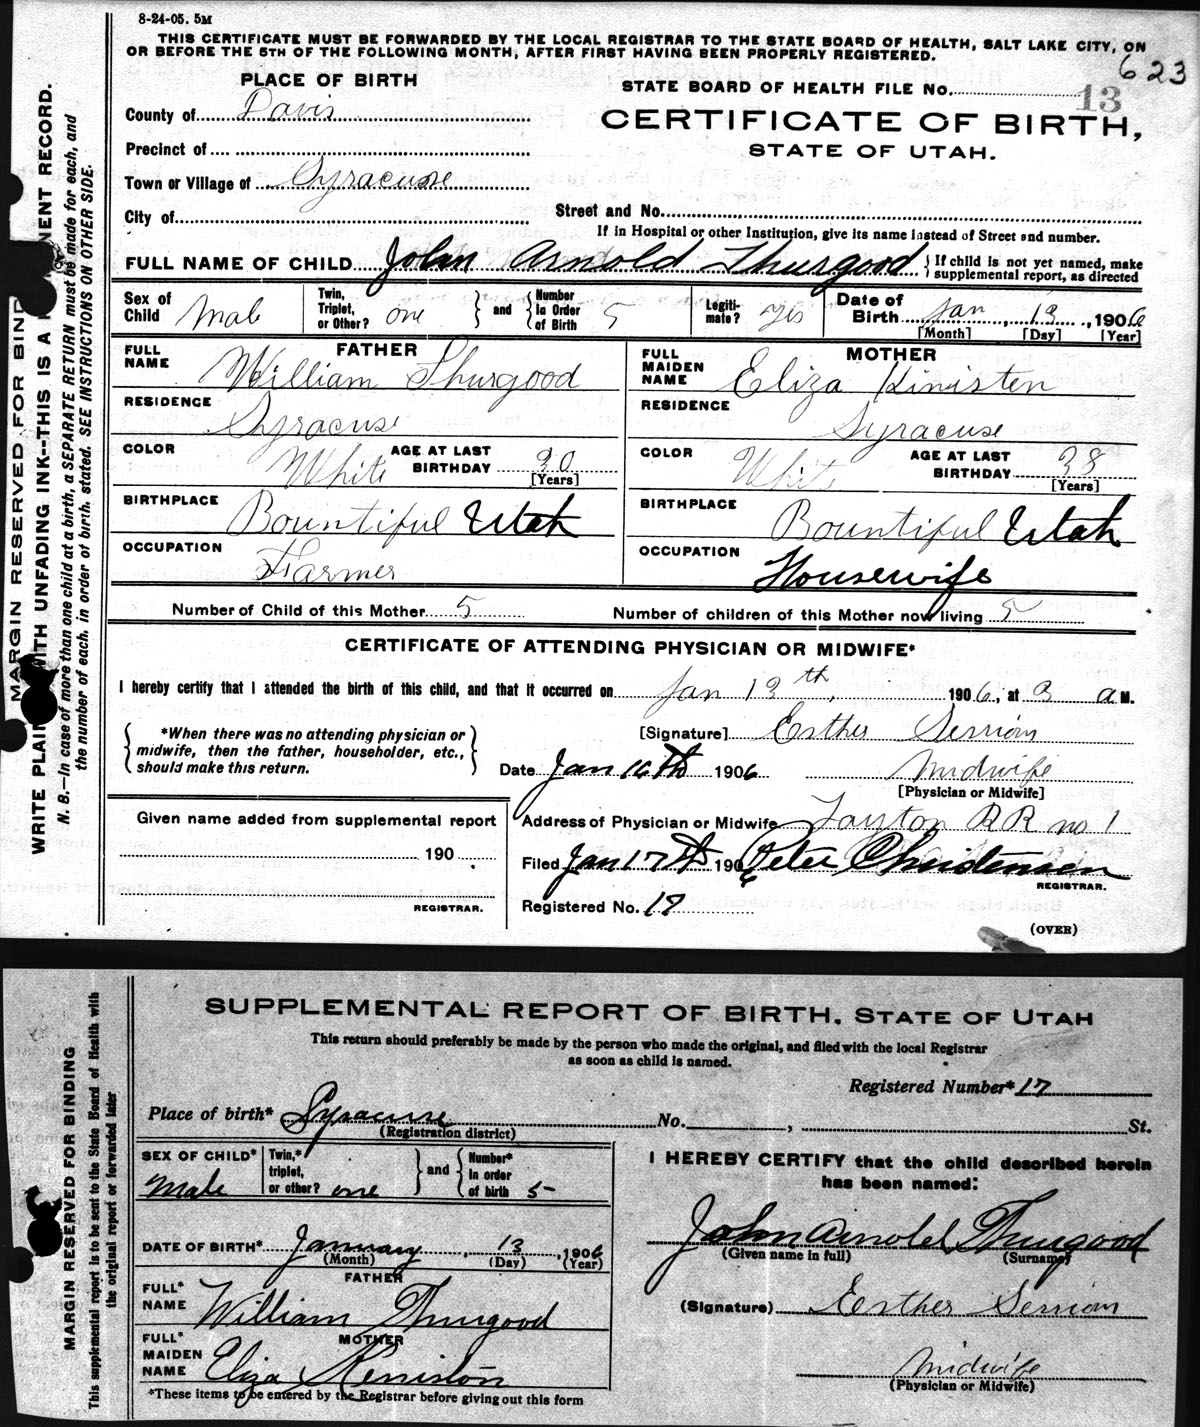 8-24-05. 5M
THIS CERTIFICATE MUST BE FORWARDED BY THE LOCAL REGISTRAR TO THE STATE BOARD OF HEALTH, SALT LAKE CITY, ON
OR BEFORE THE 5TH OF THE FOLLOWING MONTH, AFTER FIRST HAVING BEEN PROPERLY REGISTERED.
623
PLACE OF BIRTH
STATE BOARD OF HEALTH FILE No. 13
County of Davis
CERTIFICATE OF BIRTH,
STATE OF UTAH.
Precinct of
Town or Village of Syracuse
City of
Street and No.
If in Hospital or other Institution, give its name instead of Street and number.
FULL NAME OF CHILD John Arnold Thurgood { If child is not yet named, make
supplemental report, as directed
Sex of Child Male
Twin, Triplet, or Other? one } and { Number in Order of Birth 5
Legitimate? yes
Date of Birth Jan, 13, 1906
[Month] [Day] [Year]
FATHER
FULL NAME William Thurgood
RESIDENCE Syracuse
COLOR White AGE AT LAST BIRTHDAY 30 [Years]
BIRTHPLACE Bountiful Utah
OCCUPATION Farmer
MOTHER
FULL MAIDEN NAME Eliza Kinisten
RESIDENCE Syracuse
COLOR White AGE AT LAST BIRTHDAY 38 [Years]
BIRTHPLACE Bountiful Utah
OCCUPATION Housewife
Number of Child of this Mother 5 Number of children of this Mother now living 5
CERTIFICATE OF ATTENDING PHYSICIAN OR MIDWIFE*
I hereby certify that I attended the birth of this child, and that it occurred on Jan 13th, 1906, at 3 a M.
{ *When there was no attending physician or
midwife, then the father, householder, etc.,
should make this return. }
[Signature] Esther Sessions
Date Jan 16th 1906 Midwife
[Physician or Midwife]
Given name added from supplemental report
190
REGISTRAR.
Address of Physician or Midwife Layton RR no 1
Filed Jan 17th 1906 Peter Christensen
REGISTRAR.
Registered No. 17
(OVER)
MARGIN RESERVED FOR BIND
WRITE PLAIN WITH UNFADING INK--THIS IS A NENT RECORD.
N. B.—In case of more than one child at a birth, a SEPARATE RETURN must be made for each, and
the number of each, in order of birth, stated. SEE INSTRUCTIONS ON OTHER SIDE.
SUPPLEMENTAL REPORT OF BIRTH, STATE OF UTAH
This return should preferably be made by the person who made the original, and filed with the local Registrar
as soon as child is named.
Registered Number* 17
Place of birth* Syracuse No. , St.
(Registration district)
SEX OF CHILD* Male
Twin,* triplet, or other? one } and { Number* in order of birth 5
I HEREBY CERTIFY that the child described herein
has been named:
John Arnold Thurgood
(Given name in full) (Surname)
DATE OF BIRTH* January, 13, 1906
(Month) (Day) (Year)
FATHER
FULL* NAME William Thurgood
MOTHER
FULL* MAIDEN NAME Eliza Keniston
(Signature) Esther Sessions
Midwife
(Physician or Midwife)
*These items to be entered by the Registrar before giving out this form
MARGIN RESERVED FOR BINDING
This supplemental report is to be sent to the State Board of Health with
the original report or forwarded later